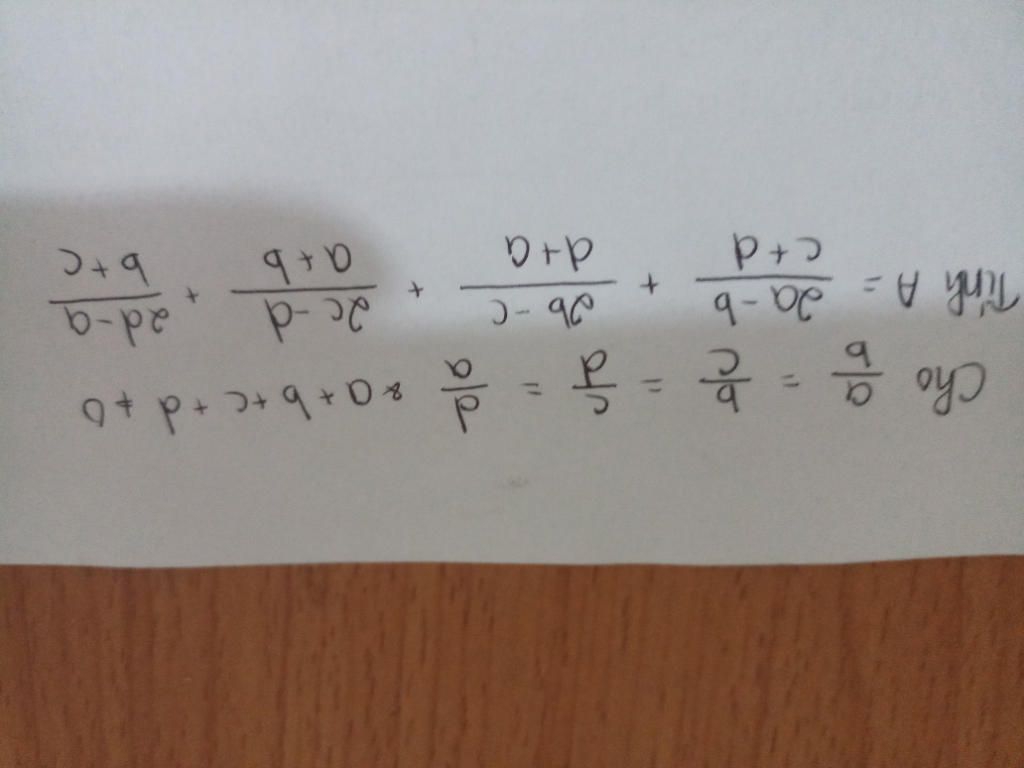 Cho a/b = b/c = c/d = d/a & a+b+c+d ≠ 0
Tính A = 2a-b/c+d + 2b-c/d+a + 2c-d/a+b + 2d-a/b+c